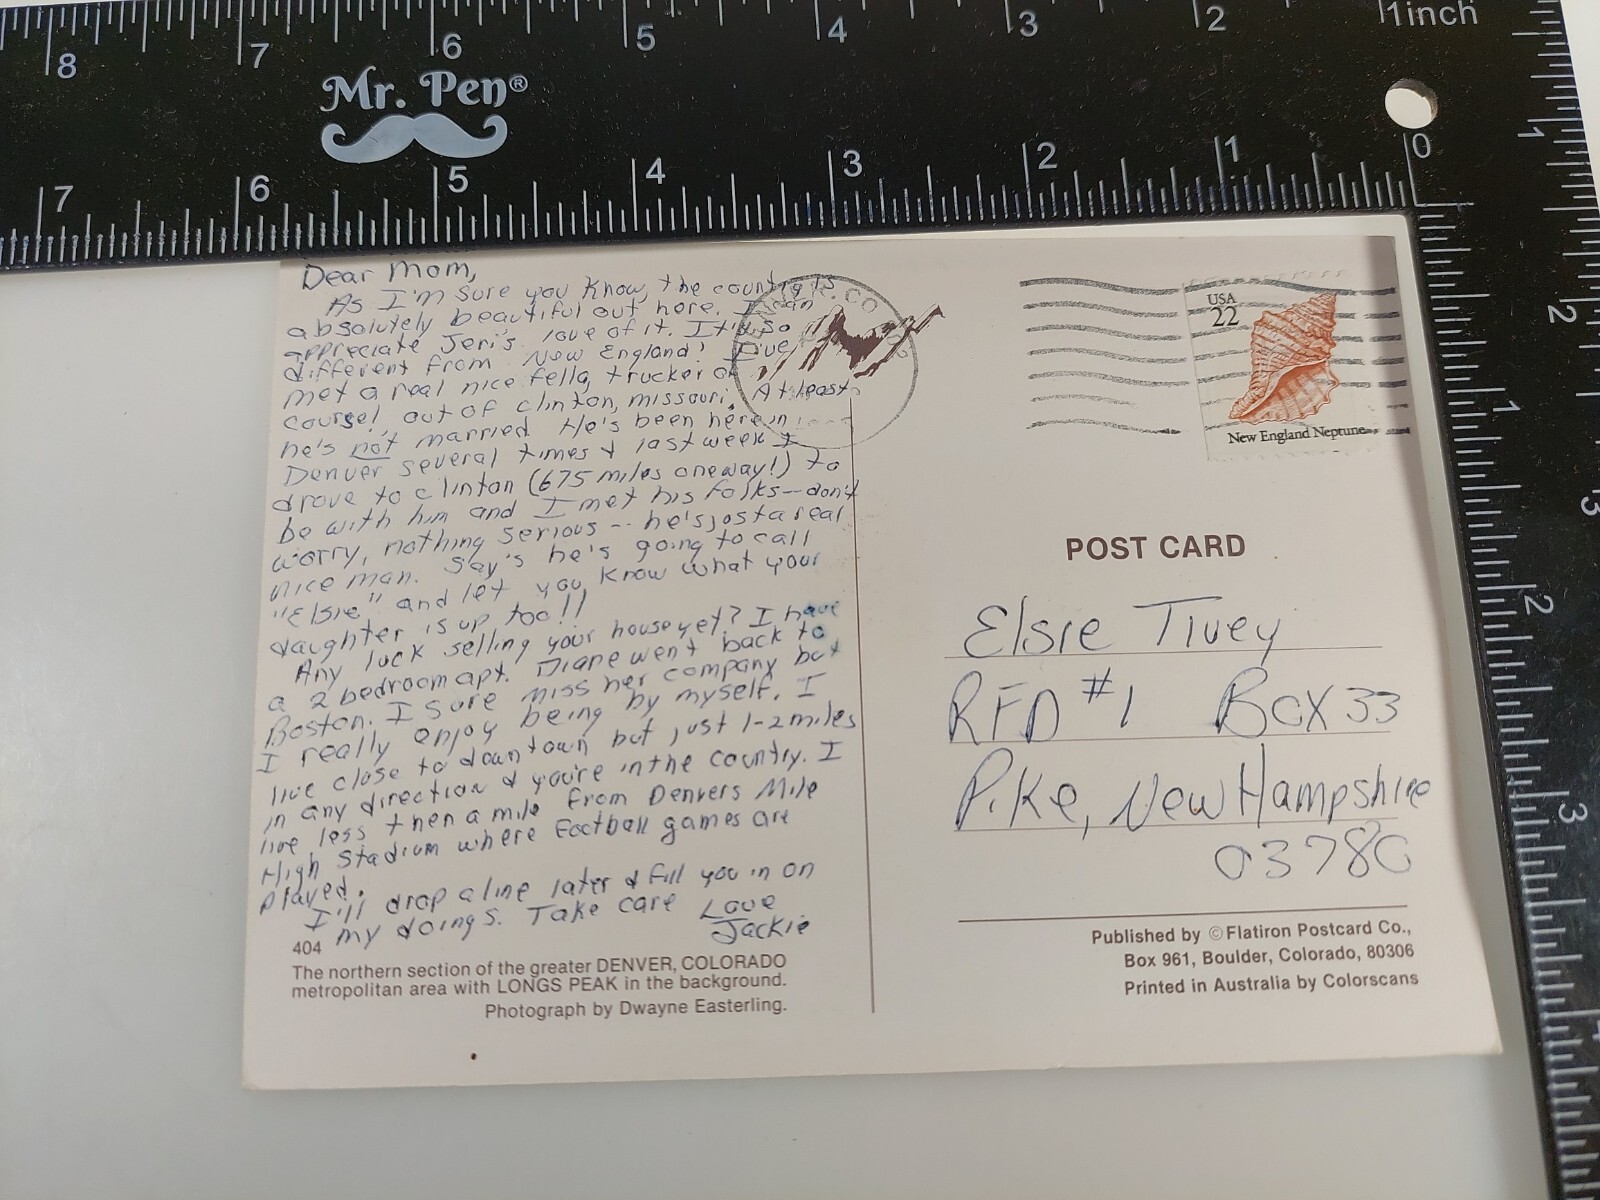 1inch 2 3 4 5 6 7 8
Mr. Pen®
0 1 2 3 4 5 6 7
1 2 3
1 2 3 4
Dear Mom,
As I'm sure you know, the country is
absolutely beautiful out here. I can
appreciate Jeri's love of it. It's so
different from New England! I've
met a real nice fella, trucker of
course!, out of Clinton, Missouri. At least
he's not married. He's been here in
Denver several times & last week I
drove to Clinton (675 miles oneway!) to
be with him and I met his folks—don't
worry, nothing serious -- he's just a real
nice man. Say's he's going to call
"Elsie" and let you know what your
daughter is up too!!
Any luck selling your house yet? I have
a 2 bedroom apt. Diane went back to
Boston. I sure miss her company but
I really enjoy being by myself. I
live close to downtown but just 1-2 miles
in any direction & you're in the country. I
live less then a mile from Denvers Mile
High Stadium where Football games are
played.
I'll drop a line later & fill you in on
my doings. Take care Love
Jackie
404
The northern section of the greater DENVER, COLORADO
metropolitan area with LONGS PEAK in the background.
Photograph by Dwayne Easterling.
USA
22
New England Neptune
POST CARD
Elsie Tivey
RFD #1 Box 33
Pike, New Hampshire
03780
Published by ©Flatiron Postcard Co.,
Box 961, Boulder, Colorado, 80306
Printed in Australia by Colorscans